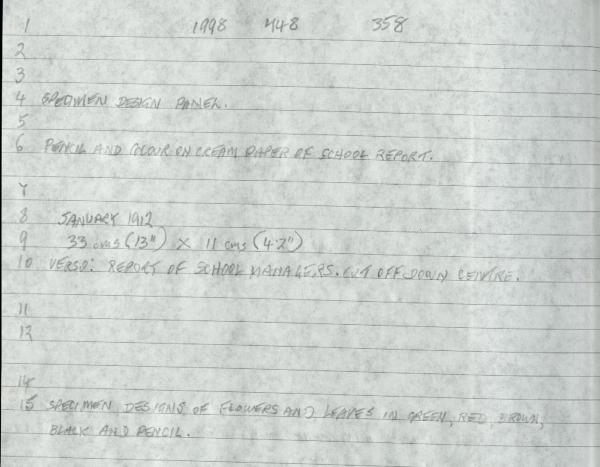 1 1998 448 358
2
3
4 SPECIMEN DESIGN PANEL.
5
6 PENCIL AND COLOUR ON CREAM PAPER OF SCHOOL REPORT.
7
8 JANUARY 1912
9 33 cms (13") X 11 cms (4.2")
10 VERSO: REPORT OF SCHOOL MANAGERS. CUT OFF DOWN CENTRE.
11
12
14
15 SPECIMEN DESIGNS OF FLOWERS AND LEAVES IN GREEN, RED, BROWN,
BLACK AND PENCIL.